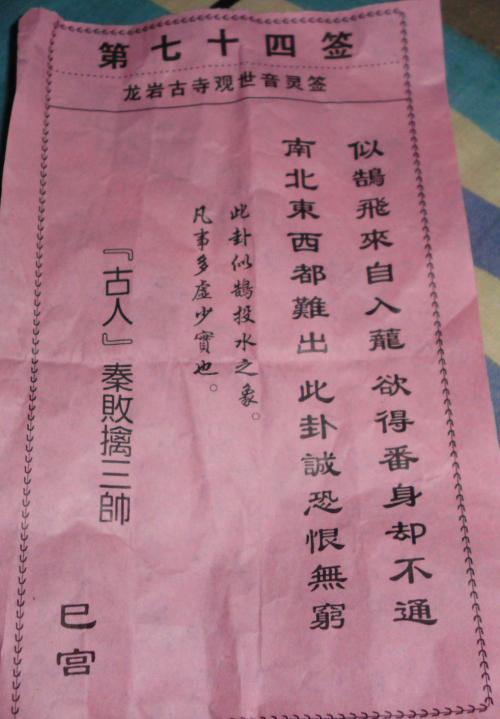 第七十四签
龙岩古寺观世音灵签
似鵠飛來自入蘢 欲得番身却不通
南北東西都難出 此卦誠恐恨無窮
此卦似鵲投水之象。
凡事多虛少實也。
『古人』秦敗擒三帥
巳宫